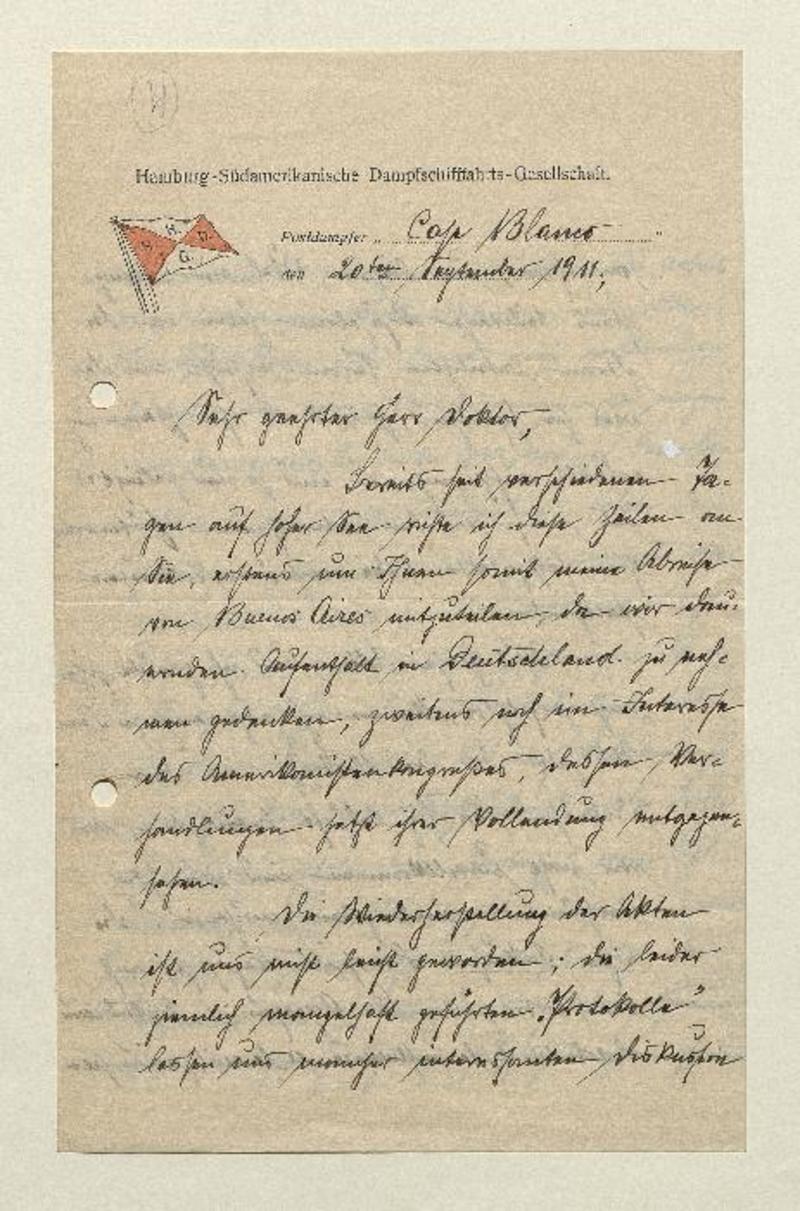 Hamburg-Südamerikanische Dampfschifffahrts-Gesellschaft.
H. S. D. G.
Postdampfer „Cap Blanco"
20ten September 1911,
Sehr geehrter Herr Doktor,
Bereits seit verschiedenen Ta-
gen auf hoher See richte ich diese Zeilen an
Sie, erstens um Ihnen somit meine Abreise
von Buenos Aires mitzuteilen, da wir dau-
ernden Aufenthalt in Deutschland zu neh-
men gedenken, zweitens noch im Interesse
des Amerikanistenkongreßes, dessen Ver-
handlungen jetzt ihrer Vollendung entgegen-
sehen.
Die Wiederherstellung der Akten
ist uns nicht leicht geworden; die leider
ziemlich mangelhaft geführten „Protokolle"
lassen uns mancher interessanten Diskussion